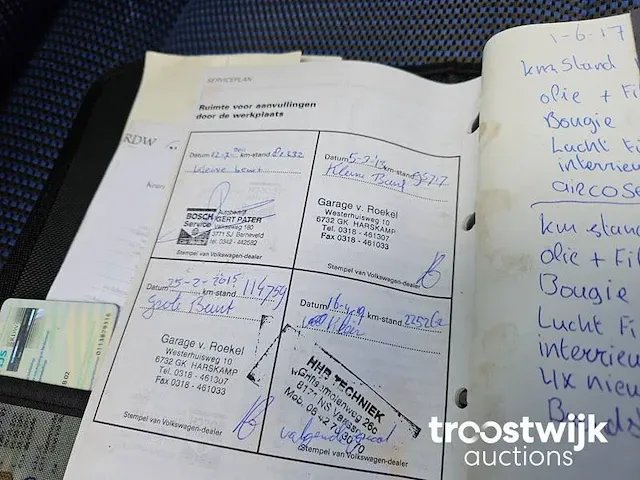 SERVICEPLAN
Ruimte voor aanvullingen
door de werkplaats
RDW
Datum 12-7- km-stand
Kleine beurt
BOSCH
Service
Autobedrijf
GERT PATER
3771 SJ Barneveld
tel. 0342 - 442582
Stempel van Volkswagen-dealer
Datum 5-2-'13 km-stand
Klein Beurt
Garage v. Roekel
Westerhuisweg 10
6732 GK HARSKAMP
Tel. 0318 - 461307
Fax 0318 - 461033
Stempel van Volkswagen-dealer
Datum 25-2-2015 km-stand 114759
Grote Beurt
Garage v. Roekel
Westerhuisweg 10
6732 GK HARSKAMP
Tel. 0318 - 461307
Fax 0318 - 461033
Stempel van Volkswagen-dealer
Datum 16-4-19 km-stand 225262
HHB TECHNIEK
8171 NS Vaassen
Mob. 06
Stempel van Volkswagen-dealer
1-6-17
km stand
olie + Fi
Bougie
Lucht Fi
interrieu
airco S
km stand
olie + Fil
Bougie
Lucht Fi
interrieu
4x nieu
troostwijk
auctions